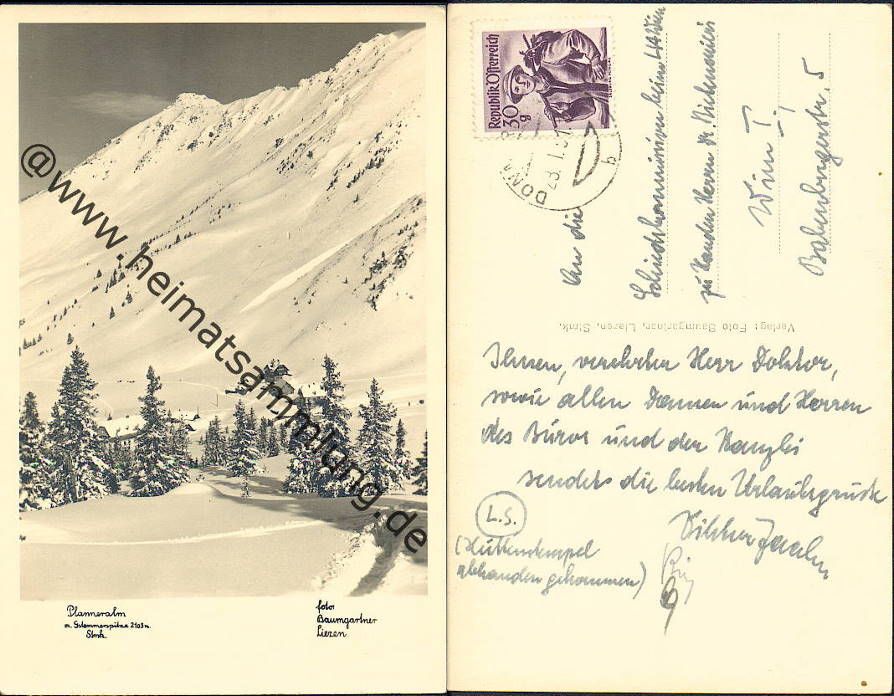 @www.heimatsammlung.de
Planneralm
m. Grammerspitze 2103 m.
Stmk.
foto
Baumgartner
Liezen
Republik Österreich
30
g
DONN
23.1.51
b
An die
Schiedskommission beim
zu Handen Herrn Dr.
Wien I.
Babenbergerstr. 5
Verlag: Foto Baumgartner, Liezen, Stmk.
Ihnen, verehrter Herr Doktor,
sowie allen Damen und Herren
des Büros und der Kanzlei
sendet die besten Urlaubsgrüsse
L.S.
(Hüttenstempel
abhanden gekommen)